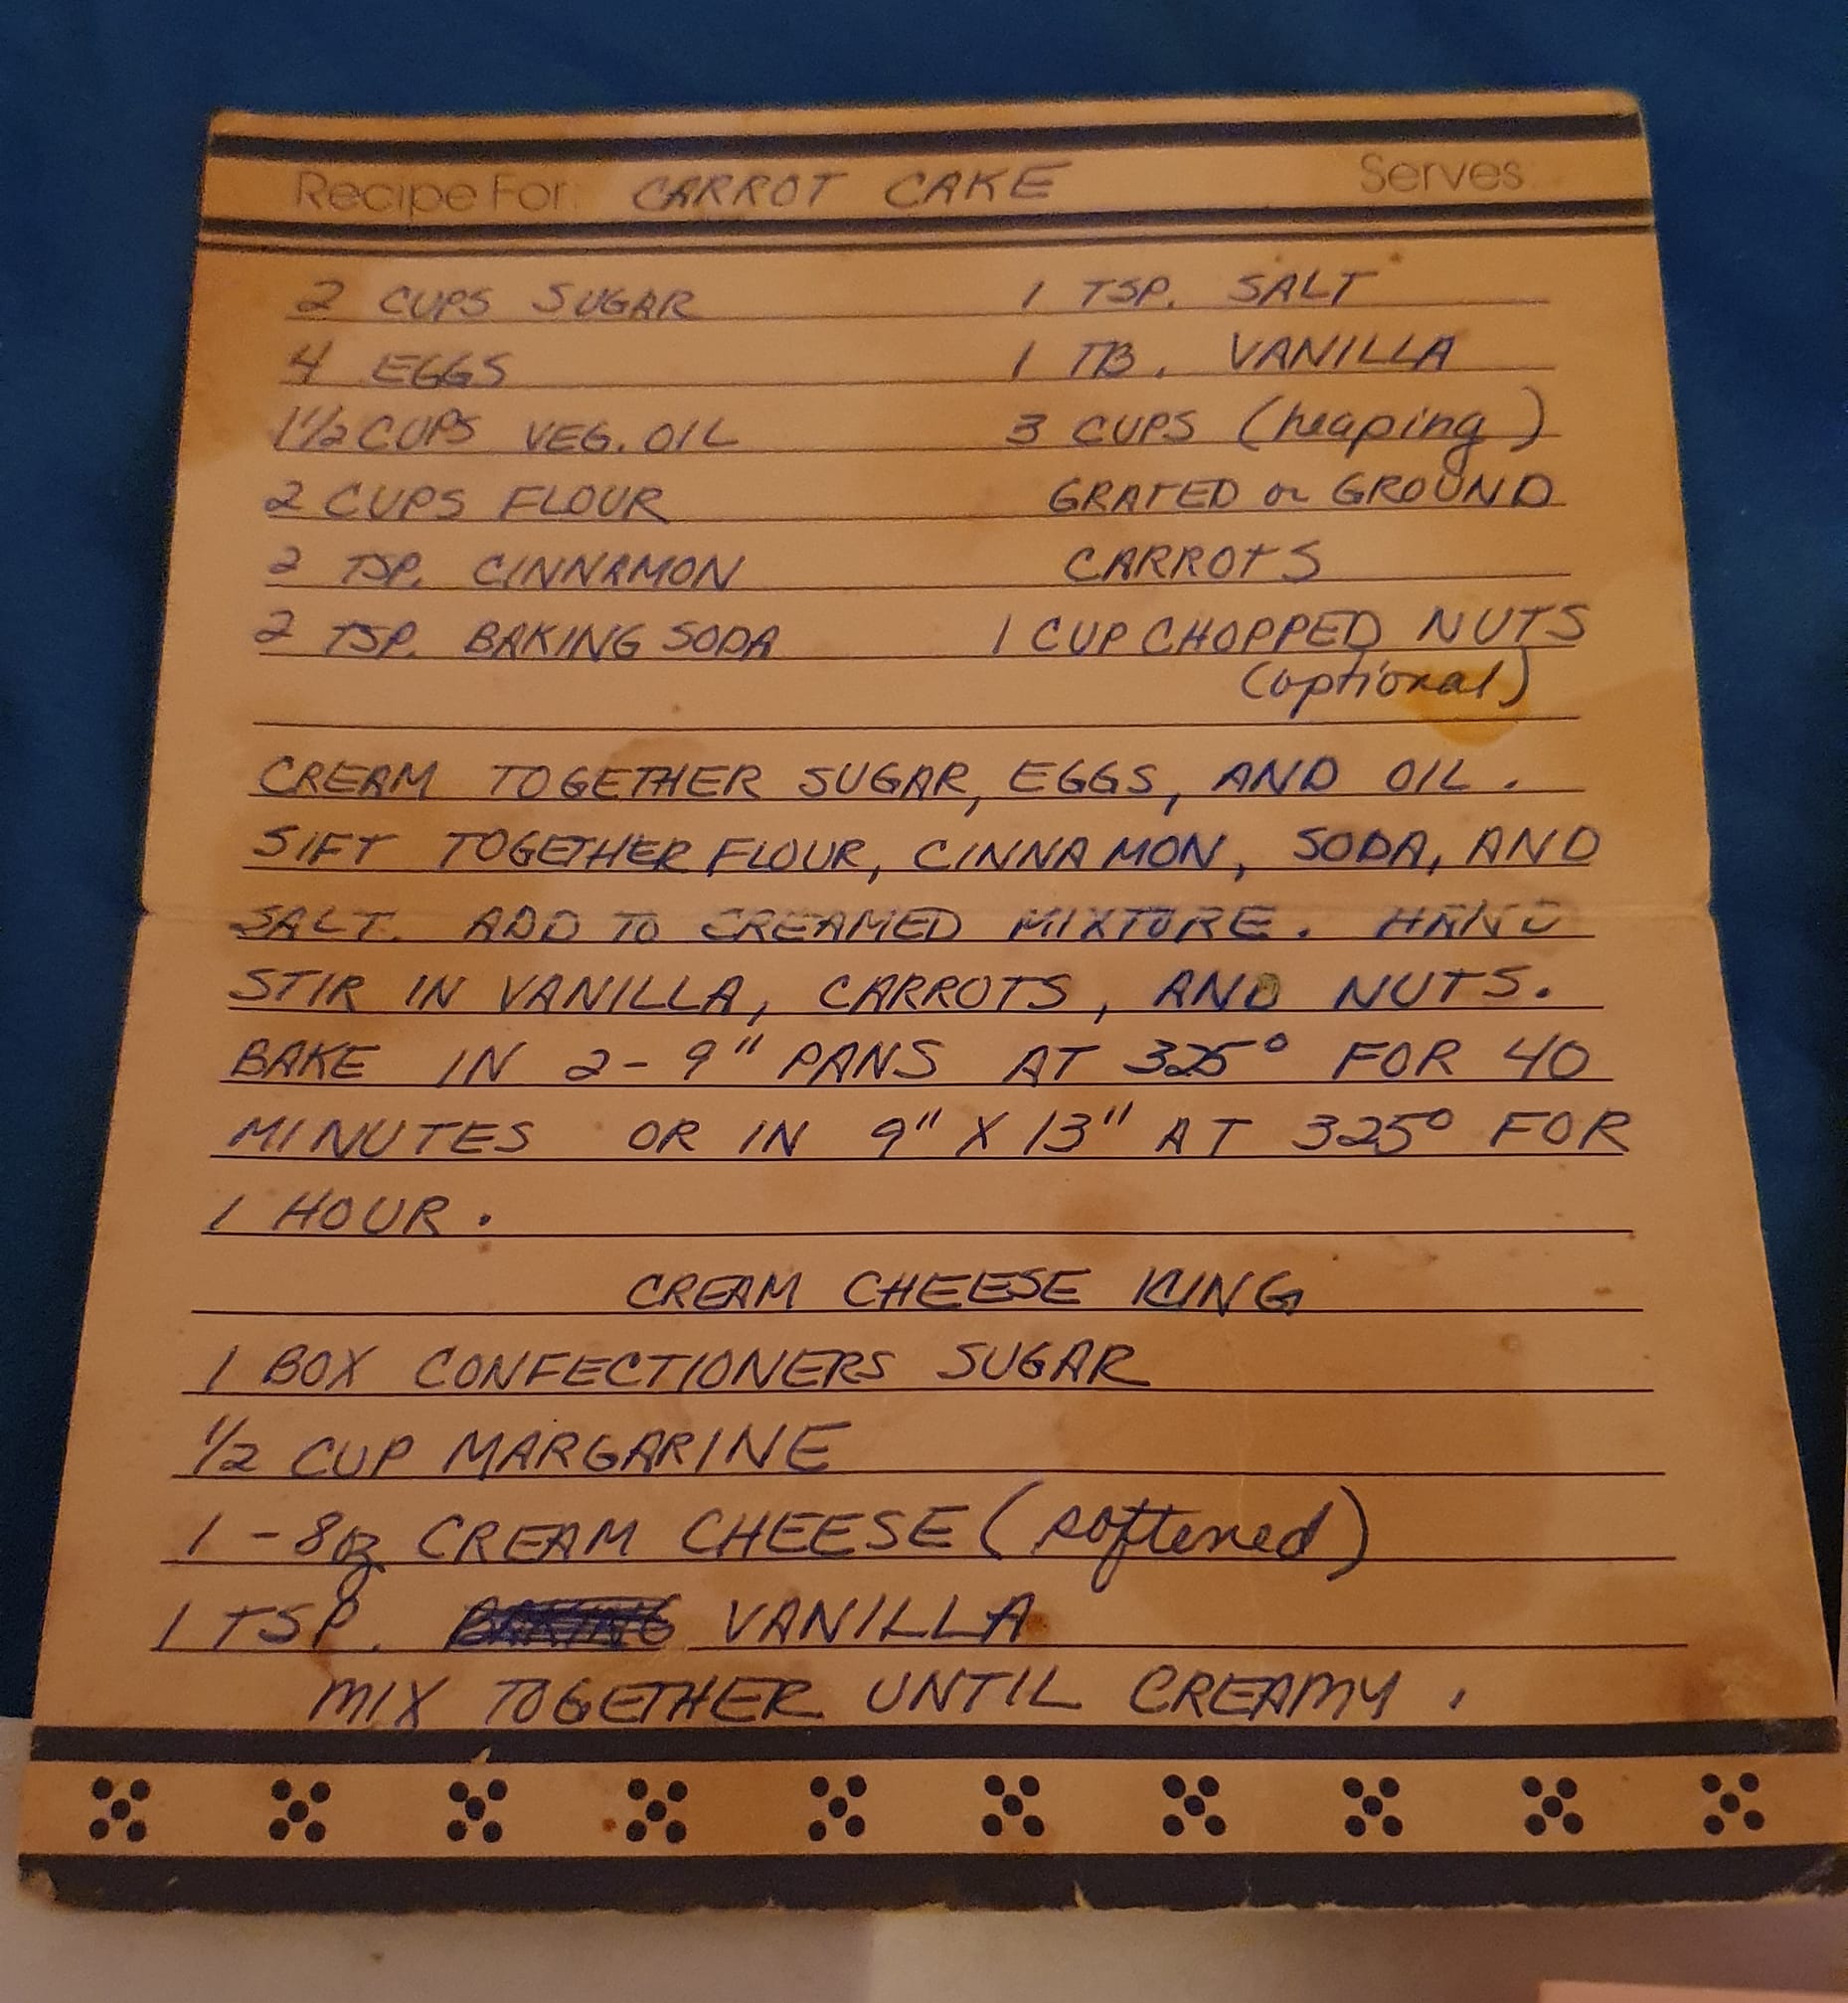 Recipe For: CARROT CAKE Serves
2 CUPS SUGAR
4 EGGS
1½ CUPS VEG. OIL
2 CUPS FLOUR
2 TSP. CINNAMON
2 TSP. BAKING SODA
1 TSP. SALT
1 TB. VANILLA
3 CUPS (heaping)
GRATED or GROUND
CARROTS
1 CUP CHOPPED NUTS
(optional)
CREAM TOGETHER SUGAR, EGGS, AND OIL.
SIFT TOGETHER FLOUR, CINNAMON, SODA, AND
SALT. ADD TO CREAMED MIXTURE. HAND
STIR IN VANILLA, CARROTS, AND NUTS.
BAKE IN 2-9" PANS AT 325° FOR 40
MINUTES OR IN 9" X 13" AT 325° FOR
1 HOUR.
CREAM CHEESE ICING
1 BOX CONFECTIONERS SUGAR
1/2 CUP MARGARINE
1-8oz CREAM CHEESE (softened)
1 TSP. VANILLA
MIX TOGETHER UNTIL CREAMY.